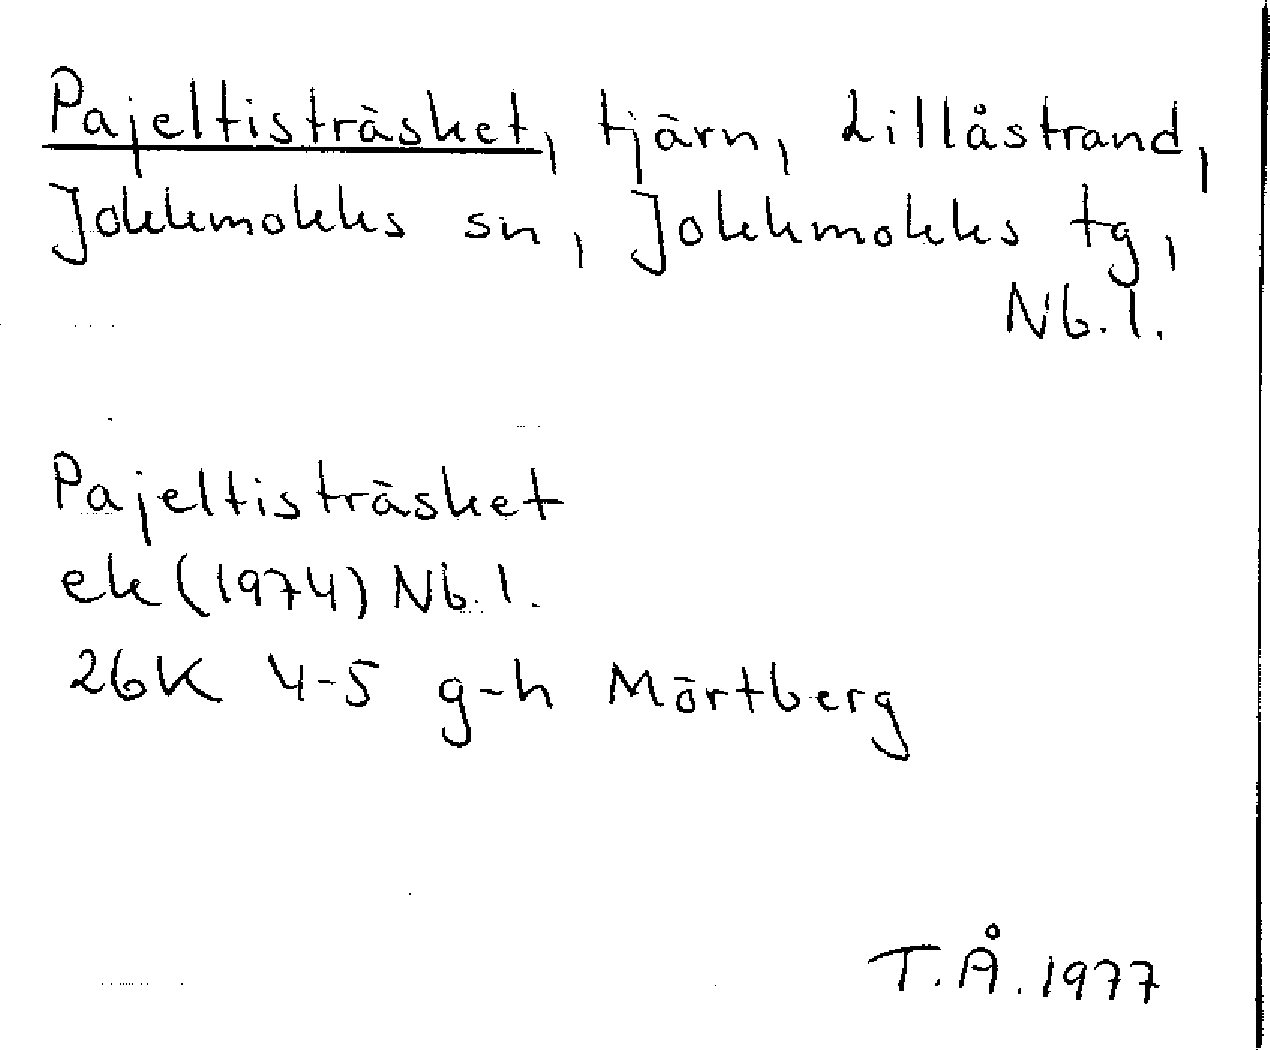 Pajeltisträsket, tjärn, Lillåstrand,
Jokkmokks sn, Jokkmokks tg,
Nb.l.
Pajeltisträsket
ek (1974) Nb.l.
26K 4-5 g-h Mörtberg
T.Å. 1977